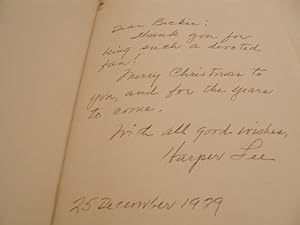 Dear Beckie:
Thank you for
being such a devoted
fan!
Merry Christmas to
you, and for the years
to come.
With all good wishes,
Harper Lee
25 December 1979